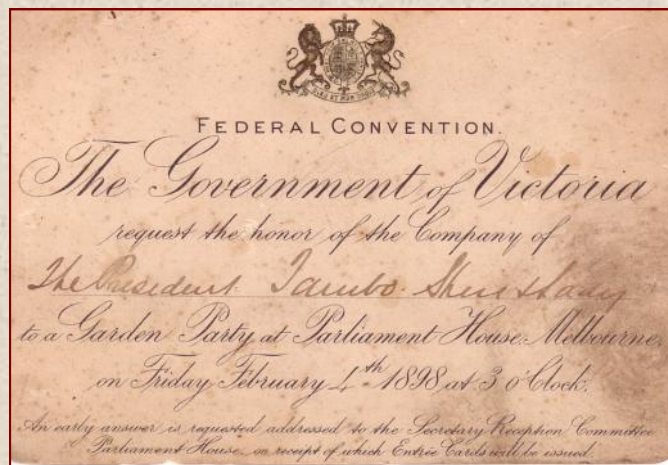 FEDERAL CONVENTION.
The Government of Victoria
request the honor of the Company of
The President Tambo Shire & Lady
to a Garden Party at Parliament House, Melbourne,
on Friday February 4th 1898 at 3 o'Clock.
An early answer is requested addressed to the Secretary Reception Committee
Parliament House, on receipt of which Entrée Cards will be issued.